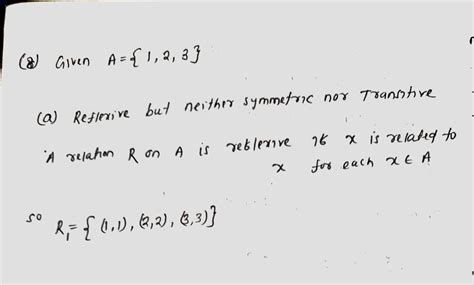 (8) Given A={1,2,3}
(a) Reflexive but neither symmetric nor Transitive
A relation R on A is reflexive if x is related to
x for each x ∈ A
so R₁={(1,1), (2,2), (3,3)}